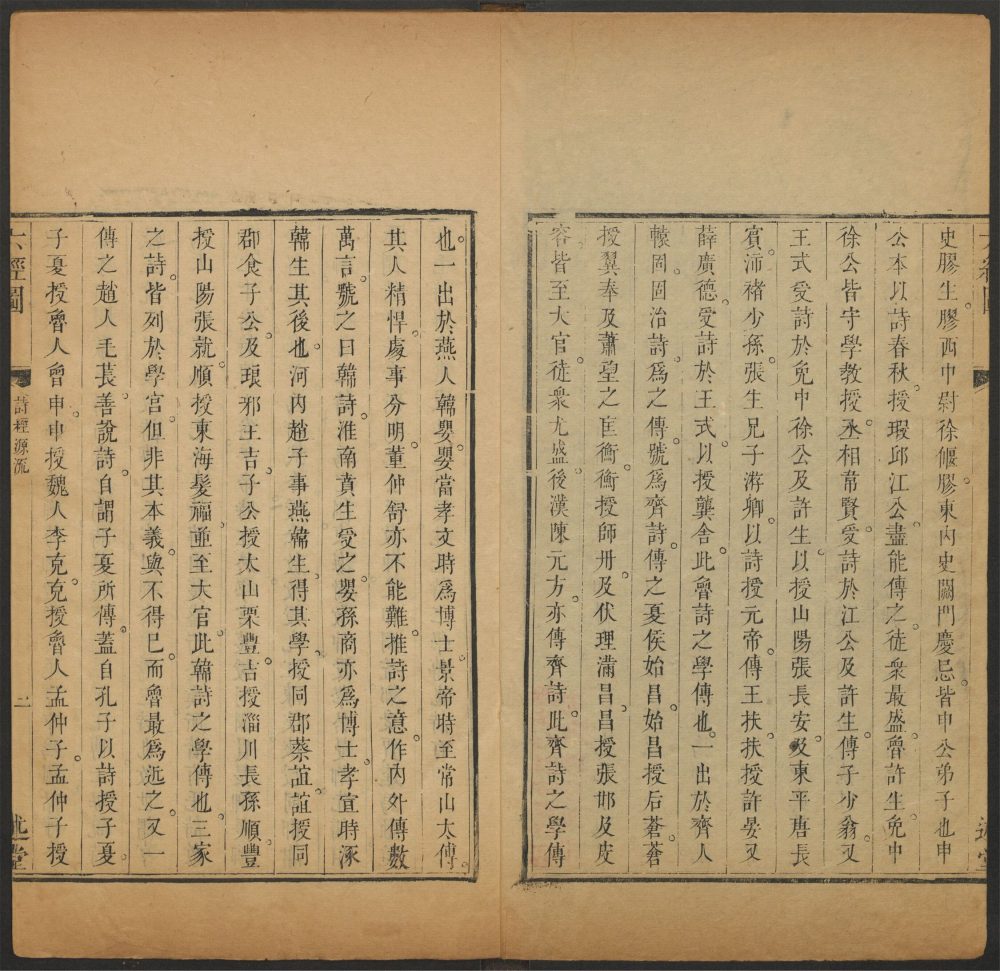 史膠生膠西中尉徐偃膠東內史闕門慶忌皆申公弟子也申
公本以詩春秋授瑕邱江公盡能傳之徒衆最盛魯許生免中
徐公皆守學教授丞相韋賢受詩於江公及許生傳子少翁又
王式受詩於免中徐公及許生以授山陽張長安及東平唐長
賓沛褚少孫張生兄子游卿以詩授元帝傳王扶扶授許晏又
薛廣德受詩於王式以授龔舍此魯詩之學傳也一出於齊人
轅固固治詩爲之傳號爲齊詩傳之夏侯始昌始昌授后蒼蒼
授翼奉及蕭望之匡衡衡授師丹及伏理滿昌昌授張邯及皮
容皆至大官徒衆尤盛後漢陳元方亦傳齊詩此齊詩之學傳
也一出於燕人韓嬰嬰當孝文時爲博士景帝時至常山太傅
其人精悍處事分明董仲舒亦不能難推詩之意作內外傳數
萬言號之曰韓詩淮南賁生受之嬰孫商亦爲博士孝宣時涿
韓生其後也河內趙子事燕韓生得其學授同郡蔡誼誼授同
郡食子公及琅邪王吉子公授太山栗豐吉授淄川長孫順豐
授山陽張就順授東海髮福並至大官此韓詩之學傳也三家
之詩皆列於學官但非其本義與不得已而魯最爲近之又一
傳之趙人毛萇善說詩自謂子夏所傳蓋自孔子以詩授子夏
子夏授魯人曾申申授魏人李克克授魯人孟仲子孟仲子授
六經圖 詩經源流 二 述堂